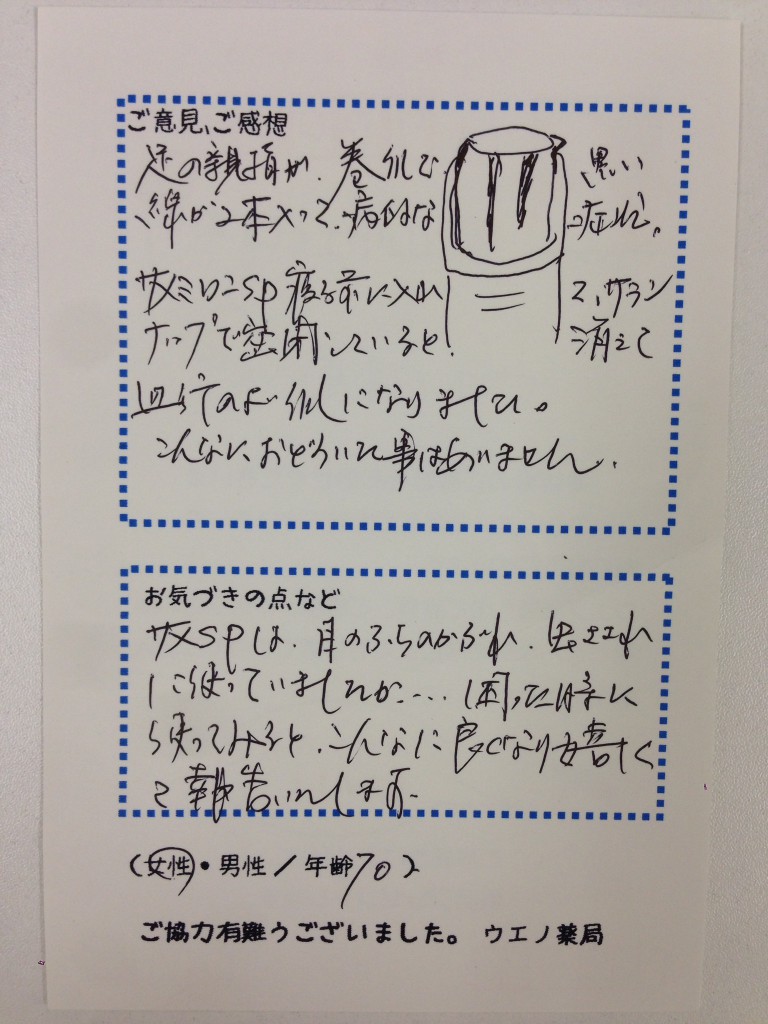 ご意見、ご感想
足の親指が、巻爪で 黒い
線が2本入って、病的な 症状。
サメミロンSP寝る前に入れ て、サラン
ナップで密閉していると 消えて
のよい爪になりました。
こんなに、おどろいた事はありません。
お気づきの点など
サメSPは、目のふちのかぶれ、虫さされ
に使っていましたが、… 困った時に
使ってみると、こんなに良くなり嬉しく
て報告いたします。
(女性・男性/年齢70)
ご協力有難うございました。 ウエノ薬局